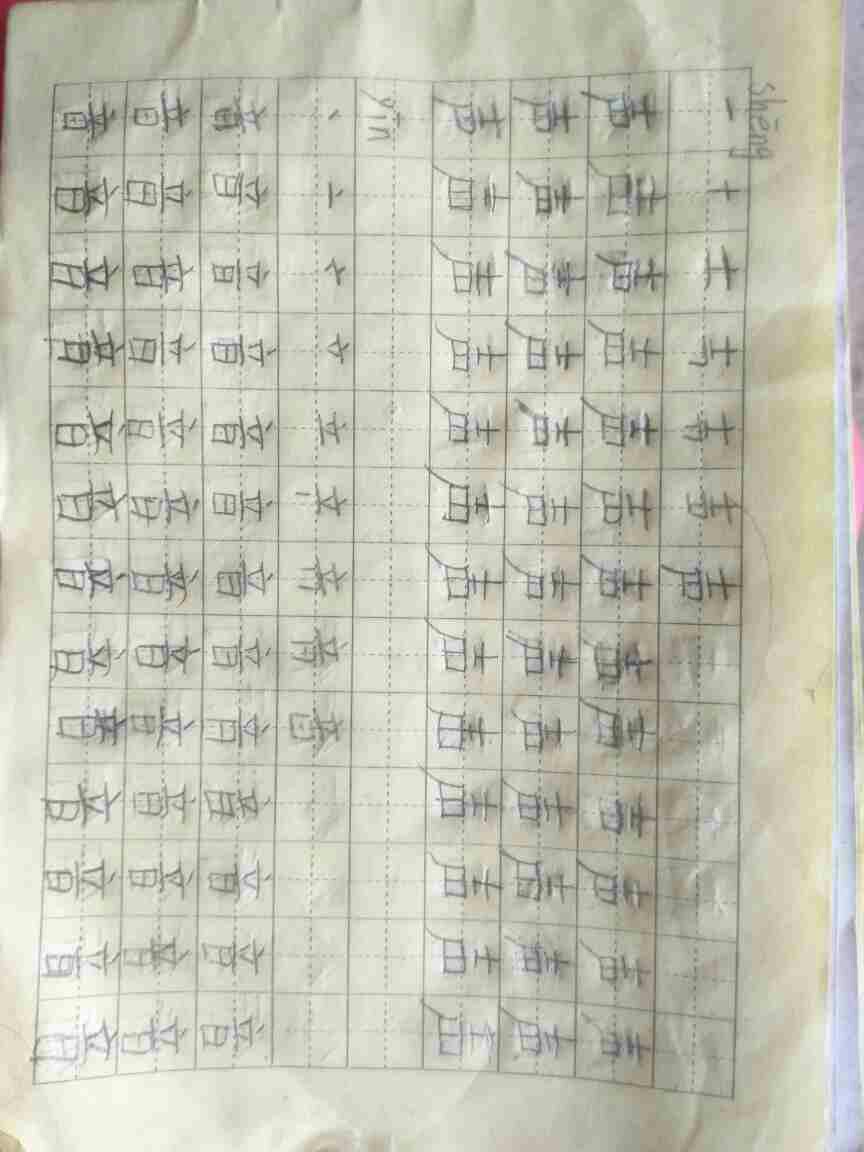 shēng
一 十 士 声
声 声 声 声 声 声 声 声 声 声 声 声 声
声 声 声 声 声 声 声 声 声 声 声 声 声
声 声 声 声 声 声 声 声 声 声 声 声 声
yīn
丶 亠 立 音
音 音 音 音 音 音 音 音 音 音 音 音 音
音 音 音 音 音 音 音 音 音 音 音 音 音
音 音 音 音 音 音 音 音 音 音 音 音 音